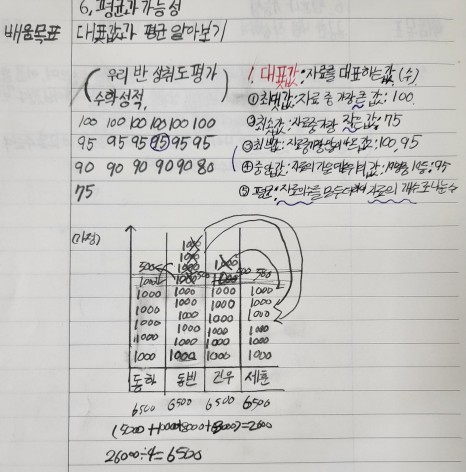 6. 평균과 가능성
배움목표 대푯값과 평균 알아보기
( 우리 반 성취도평가
수학성적 )
100 100 100 100 100 100
95 95 95 95 95 95
90 90 90 90 90 80
75
1. 대푯값: 자료를 대표하는 값 (수)
① 최댓값: 자료 중 가장 큰 값: 100
② 최솟값: 자료 중 가장 작은 값: 75
③ 최빈값: 값: 100, 95
④ 중앙값: 자료의 값: 95
⑤ 평균: 자료의 수를 모두 더하여 자료의 개수로 나눈 수
1000
1000
500 1000 1000 500 500 500
1000 1000 1000
1000 1000 1000 1000
1000 1000 1000 1000
1000 1000 1000 1000
1000 1000 1000 1000
1000 1000 1000 1000
동하 동빈 건우 세훈
6500 6500 6500 6500
26000÷4=6500